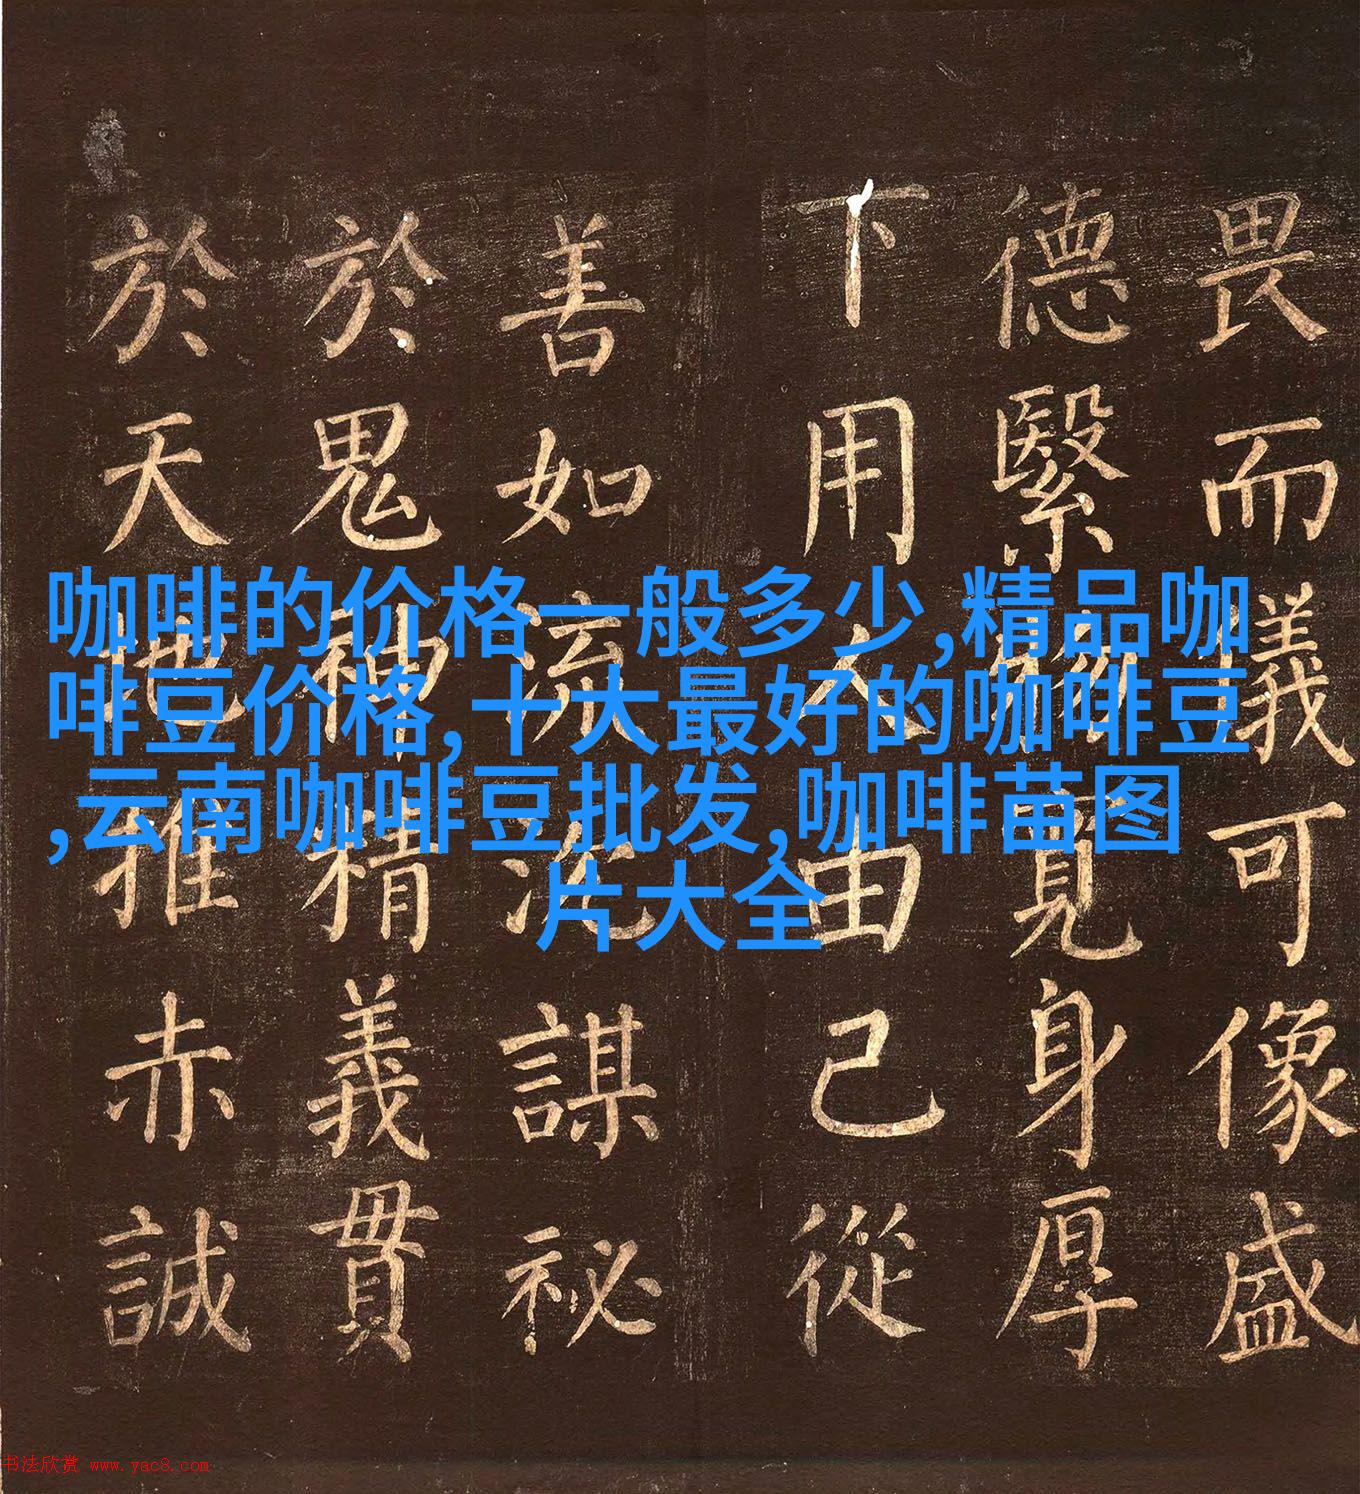 畏而義可像盛
德繄身厚
下用人由己從
善如流沈謀祕
於鬼神精義貫
於天地推赤誠
咖啡的价格一般多少,精品咖
啡豆价格,十大最好的咖啡豆
,云南咖啡豆批发,咖啡苗图
片大全
书法欣赏 www.yac8.com